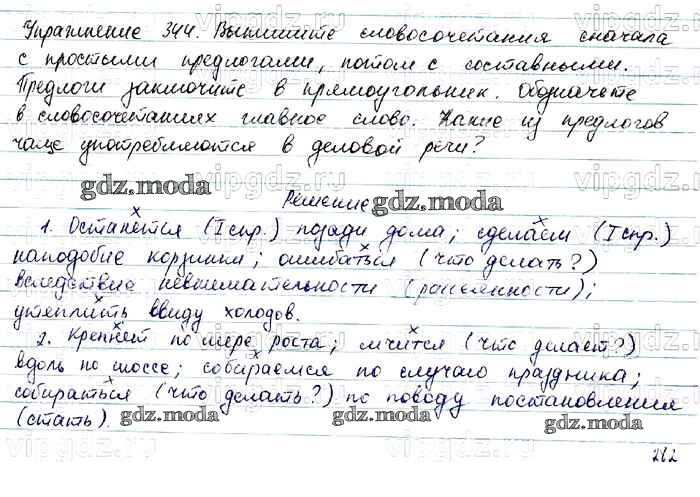 Упражнение 344. Выпишите словосочетания сначала
с простыми предлогами, потом с составными.
Предлоги заключите в прямоугольник. Обозначьте
в словосочетаниях главное слово. Какие из предлогов
чаще употребляются в деловой речи?
gdz.moda
Решение
gdz.moda
1. Останется (I спр.) позади дома; сделаем (I спр.)
наподобие корзинки; ошибаться (что делать?)
вследствие невнимательности (рассеянности);
утеплить ввиду холодов.
2. Крепнет по мере роста; мчится (что делает?)
вдоль по шоссе; собираемся по случаю праздника;
собираться (что делать?) по поводу постановления
(стать).
gdz.moda
gdz.moda
gdz.moda
282